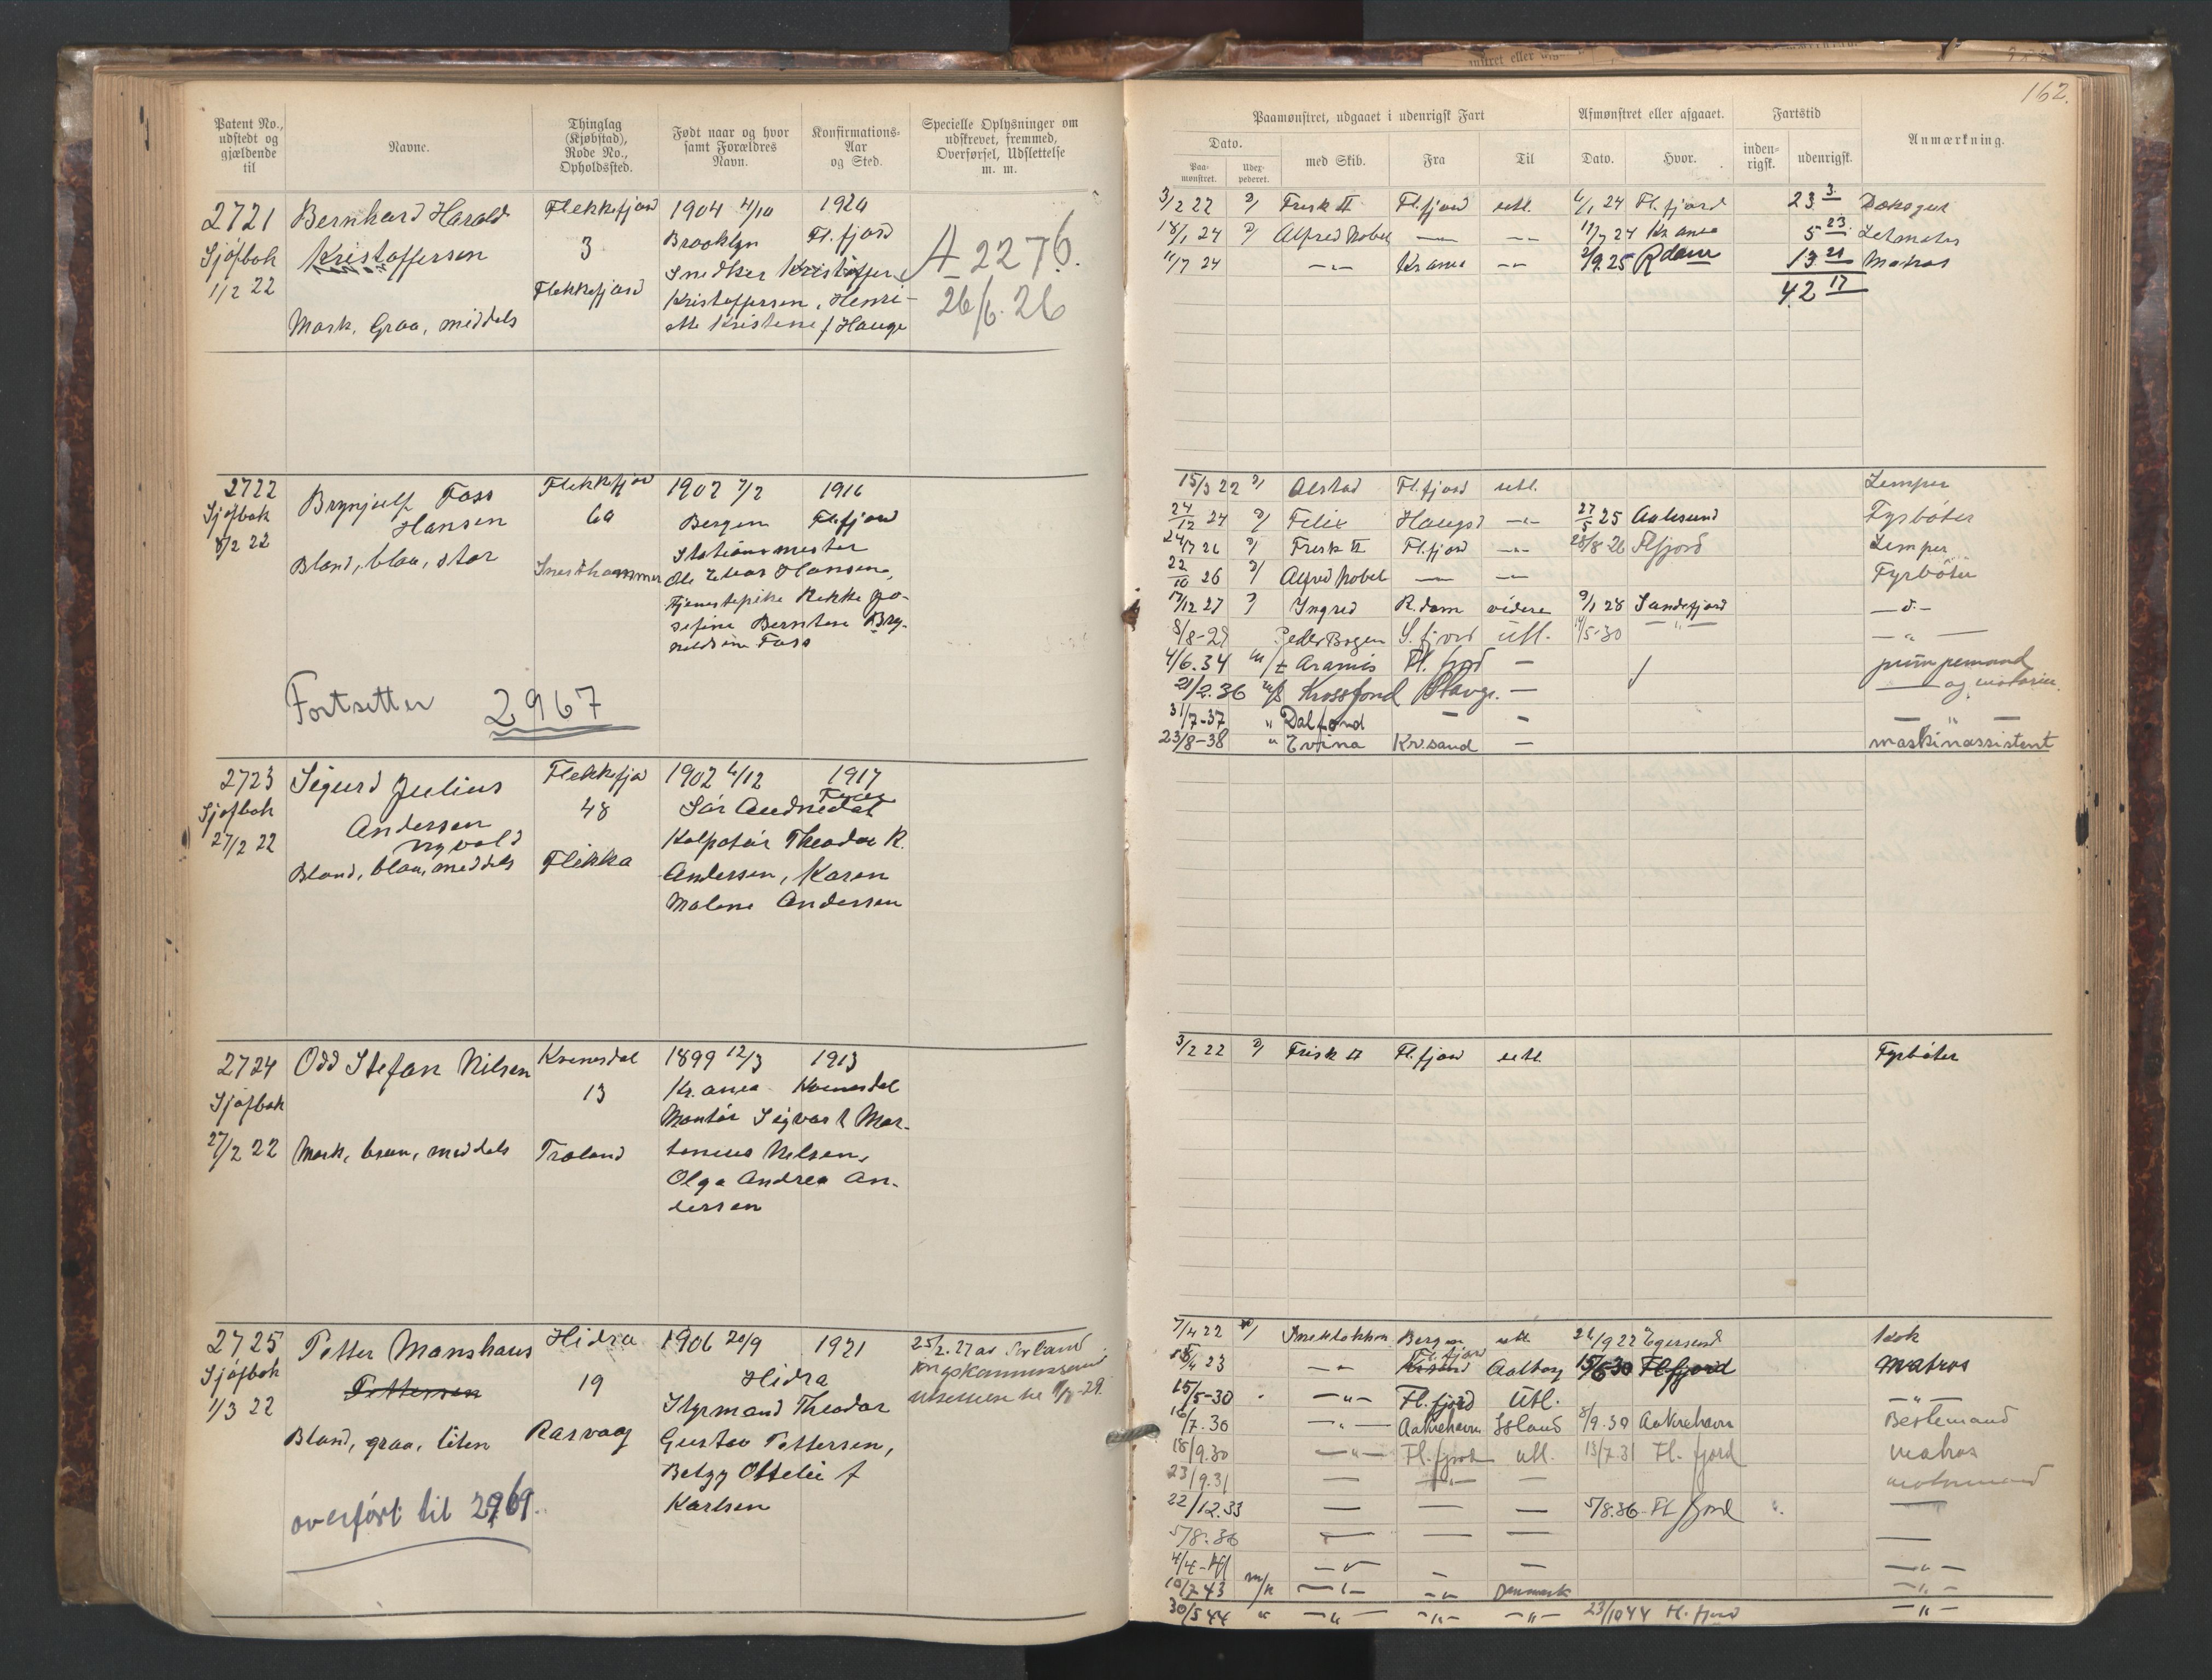 162.
Patent No., udstedt og gjældende til
Navne.
Thinglag (Kjøbstad), Rode No., Opholdssted.
Født naar og hvor samt Forældres Navn.
Konfirmations-Aar og Sted.
Specielle Oplysninger om udskrevet, fremmed, Overførsel, Udslettelse m. m.
Paamønstret, udgaaet i udenrigsk Fart
Afmønstret eller afgaaet.
Fartstid
Anmærkning.
Dato.
Paa-mønstret.
Udex-pederet.
med Skib.
Fra
Til
Dato.
Hvor.
inden-rigsk.
udenrigsk.
2721 Bernhard Harald Flekkefjord 1904 4/10 1920
Sjøfbok Kristoffersen 3 Brooklyn Fl.fjord A 2276.
1/2 22 Snedker Kristoffer
Flekkefjord Kristoffersen, Henri- 26/6. 26
Mørk, Graa, middels ette Kristene f Hauge
3/2 22 Frisk II Fl.fjord utl. 6/1 24 Fl.fjord 23 3 Dæksgut
18/1 24 Alfred Nobel — — 11/7 24 Kr.ania 5 23 Letmatros
11/7 24 — Kr.ania — 2/9.25 Rdam 13 21 Matros
42 17
2722 Brynjulf Foss Flekkefjord 1902 7/2 1916
Sjøfbok Hansen 60 Bergen Fl.fjord
8/2 22 Stationsmester
Blond, blaa, stor Ole Hansen,
Tjenestepike Rekke Jo-
sefine Berntsen Bry-
Foss
Fortsetter 2967
15/3 22 Olstad Fl.fjord utl. Lemper
24/12 24 Felix Haugsd — 27/5 25 Aalesund Fyrbøter
24/7 26 Frisk II Fl.fjord — 28/8 26 Flfjord Lemper
22/10 26 Alfred Nobel — — Fyrbøter
17/12 27 Ingrid R.dam videre 9/1 28 Sandefjord — d. —
8/8-29 Peder Bogen S.fjord utl. 14/5-30 — " —
4/6.34 m/t Aramis Fl. fjord — pumpemand
21/2.36 Krossfond Stavgr. — — og motorm.
31/7-37 " Dalfond — — — " —
23/8-38 " Evina Kr.sand — maskinassistent
2723 Sigurd Julius Flekkefjord 1902 6/12 1917
Sjøfbok Andersen 48 Sør Audnedal
27/2 22 Nyvold Kolportør Theodor R.
Blond, blaa, middels Flikka Andersen, Karen
Malene Andersen
2724 Odd Stefan Nilsen Kvinesdal 1899 12/3 1913
Sjøfbok 13 Kr.ania Kvinesdal
Montør Sigvart Mar-
27/2 22 Mørk, brun, middels Træland tinius Nilsen,
Olga Andrea An-
dersen
3/2 22 Frisk II Fl.fjord utl. Fyrbøter
2725 Petter Monshaus Hidra 1906 20/9 1921
Sjøfbok Pettersen 19 Hidra
1/3 22 Styrmand Theodor
Blond, graa, liten Rasvaag Gustav Pettersen,
Betzy Ottelie f
Karlsen
25/2. 27 av
overført til 2969.
7/4 22 Bergen utl. 26/9 22 Egersund Kok
23 — Fl.fjord Aalborg 15/5 30 Flfjord Matros
15/5-30 — " — Fl.fjord Utl. — " —
16/7.30 — " — Aakrehavn Island 8/9.30 Aakrehavn Bestemand
18/9.30 — " — Fl.fjord utl. 13/7.31 Fl. fjord Matros
23/9.31 — — " —
22/12.33 — — — 5/8.36 Fl fjord —
5/8.36 — — — —
4/4-41 — — — — " —
10/7 43 m/k — " — — " — Danmark — " —
30/5 44 " — " — — " — — " — 23/10 44 Fl. fjord — " —